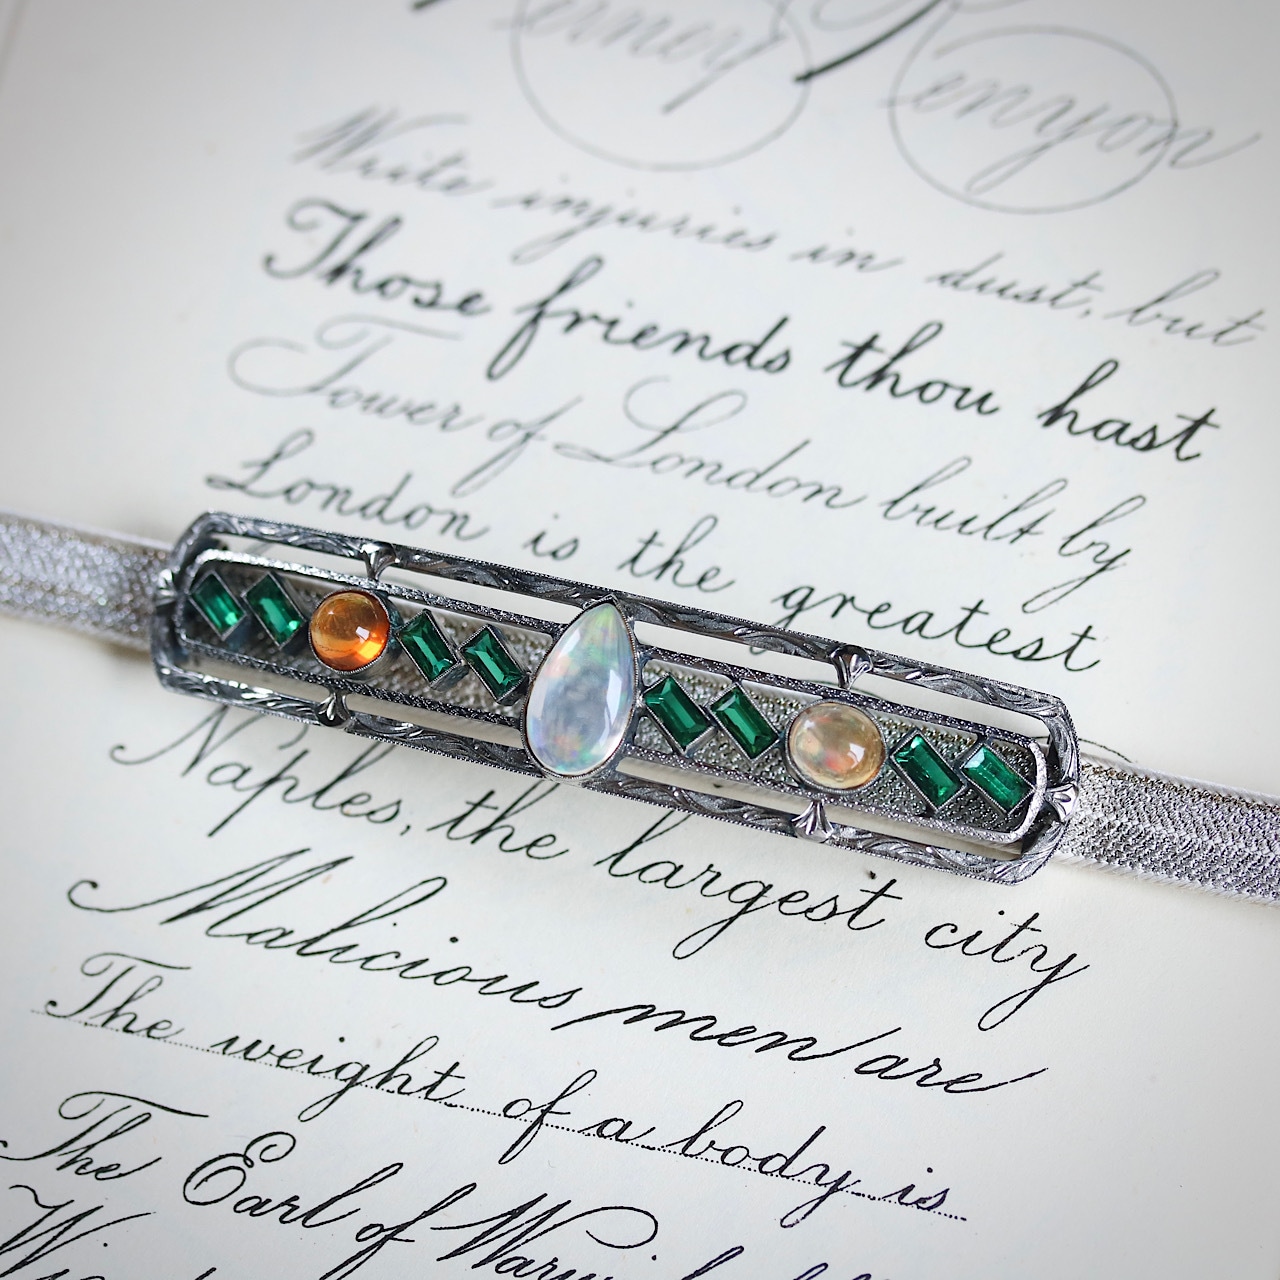 erney Kenyon
Write injuries in dust, but
Those friends thou hast
Tower of London built by
London is the greatest
Naples, the largest city
Malicious men are
The weight of a body is
The Earl of